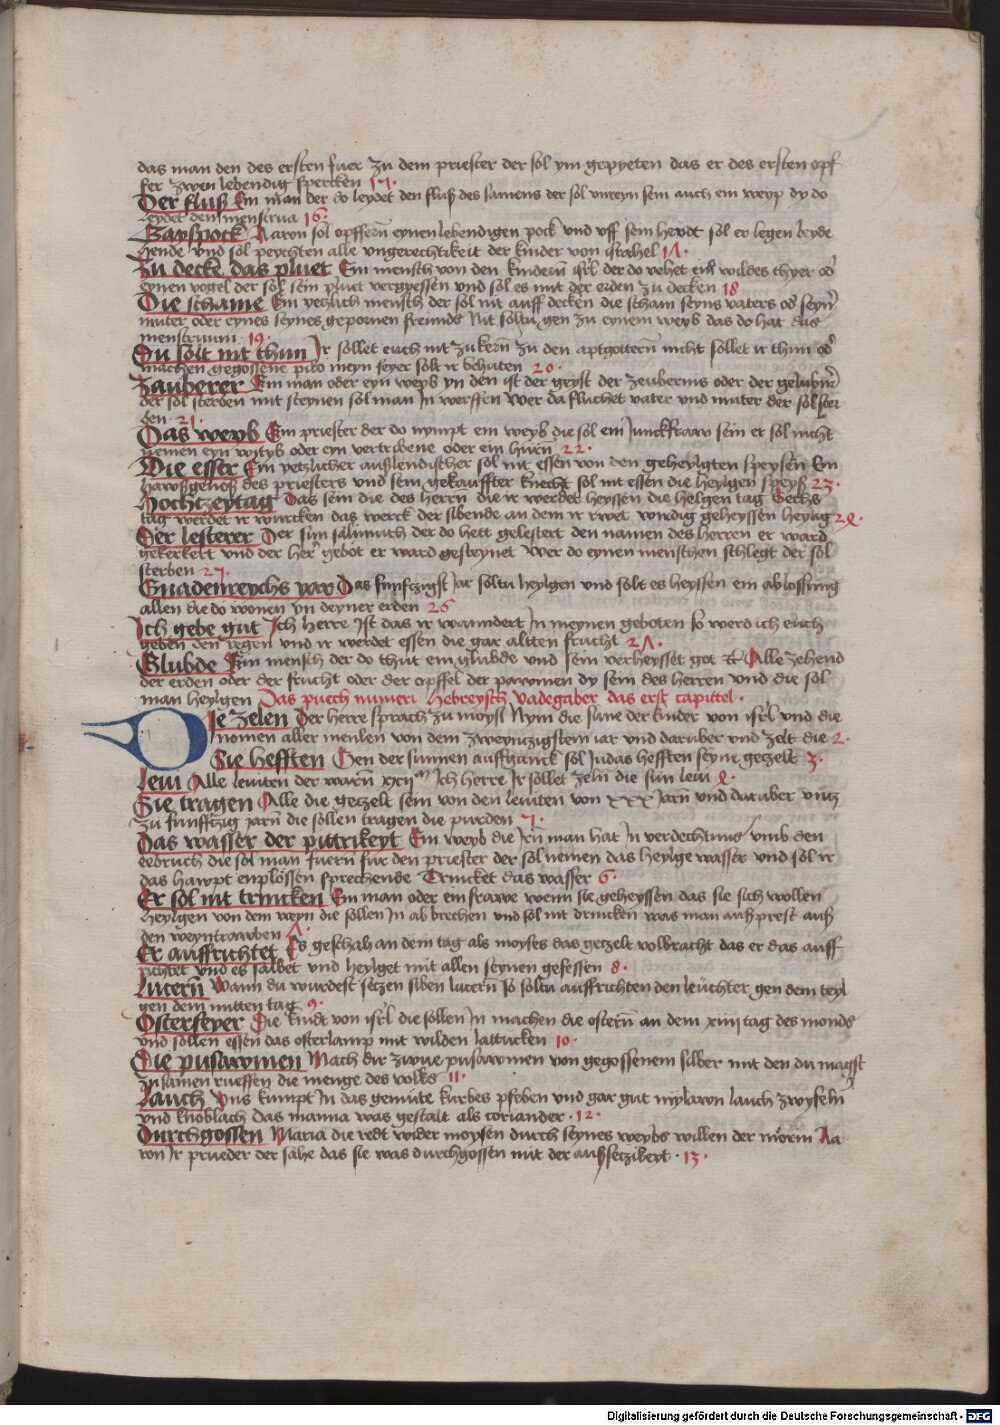 das man den des ersten fuer zu dem priester der sol ym gepyeten das er des ersten opf
fer zwen lebendig spercken 15.
Der fluß Ein man der do leydet den fluß des samens der sol unreyn sein auch ein weyp dy do
leydet den menstrua 16.
Gayspock Aaron sol opffern eynen lebendigen pock und uff sein hewbt sol er legen beyde
hende und sol peychten alle ungerechtikeit der kinder von israhel 17.
Zu decke das pluet Ein mensch von den kindern isrl der do vehet ein wildes thyer od
eynen vogel der sol sein pluet vergyessen und sol es mit der erden zu decken 18
Die schame Ein yetzlich mensch der sol nit auff decken die scham seyns vaters od seyn
muter oder eynes seynes gepornen freunds Nit soltu gen zu eynem weyb das do hat das
menstruum 19.
Du solt nit thun Ir sollet euch nit zu kern zu den aptgottern nicht sollet ir thun od
machen gegossene pild meyn feyer solt ir behuten 20.
Zauberer Ein man oder eyn weyb yn den ist der geyst der zeubernis oder der gelubni
der sol sterben mit steynen sol man in werffen Wer da fluchet vater und muter der sol ster
ben 21.
Das weyb Ein priester der do nympt ein weyb die sol ein junckfraw sein er sol nicht
nemen eyn wityb oder eyn vertribene oder ein hurn 22.
Die esser Ein yetzlicher außlendischer sol nit essen von den geheyligten speysen Ein
hawßgenoß des priesters und sein gekauffter knecht sol nit essen die heyligen speyß 23.
Hochtzeytag Das sein die des herrn die ir werdet heyssen die helgen tag Sechs
tag werdet ir wurcken das werck der sibende an dem ir rwet wirdig geheyssen heylig 24.
Der lesterer Der sun salumith der do hett gelestert den namen des herren er ward
gekerkert und der her gebot er ward gesteynet Wer do eynen menschen schlegt der sol
sterben 25.
Gnadenreychs yar Das funftzigst jar soltu heylgen und solt es heyssen ein ablossung
allen die do wonen yn deyner erden 26
Ich gebe gut Ich herre Ist das ir wanndert in meynen geboten so werd ich euch
geben den regen und ir werdet essen die gar altten frucht 27.
Glubde Ein mensch der do thut ein glubde und sein verheysset got etc Alle zehend
der erden oder der frucht oder der opffel der pawmen dy sein des herren und die sol
man heyligen Das puech numeri hebreysch Vadegaber das erst capittel.
Die zelen Der herre sprach zu moysi Nym die sume der kinder von isrl und die
nomen aller menlen von dem zweyntzigstem iar und daruber und zelt die 2.
Sie hefften Gen der sunnen auffganck sol Judas hefften seyne getzelt 3.
Leui Alle leuiten der warn xxijm Ich herre Ir sollet zeln die sun leui 4.
Sie tragen Alle die getzelt sein von den leuiten von xxx jarn und daruber untz
zu funfftzig jarn die sollen tragen die purden 5.
Das wasser der pittrikeyt Ein weyb die irn man hat in verdechtnus umb den
eebruch die sol man fuern fur den priester der sol nemen das heylge wasser und sol ir
das hawpt enplössen sprechende Trincket das wasser 6.
Er sol nit trincken Ein man oder ein frawe wenn sie geheyssen das sie sich wollen
heyligen von dem weyn die sollen in abbrechen und sol nit drincken was man außprest auß
den weyntrawben 7.
Er auffrichtet Es geschah an dem tag als moyses das getzelt volbracht das er das auff
richtet und es salbet und heylget mit allen seynen gefessen 8.
Lucern Wann du wurdest setzen siben lucern so soltu auffrichten den leuchter gen dem teyl
gen dem mitten tag 9.
Osterfeyer Die kindt von isrl die sollen in machen die ostern an dem xiiij tag des monds
und sollen essen das osterlamp mit wilden lattucken 10.
Die pusawmen Mach dir zwue pusawmen von gegossenem silber mit den du magst
zusamen rueffen die menge des volks 11.
Lauch Uns kumpt in das gemute kurbes pfeben und gar gut mylawn lauch zwyfeln
und knoblach das manna was gestalt als coriander. 12.
Durchgossen Maria die redt wider moysen durch seynes weybs willen der morin Aa
ron ir prueder der sahe das sie was durchgossen mit der außsetzikeyt. 13.
Digitalisierung gefördert durch die Deutsche Forschungsgemeinschaft - DFG